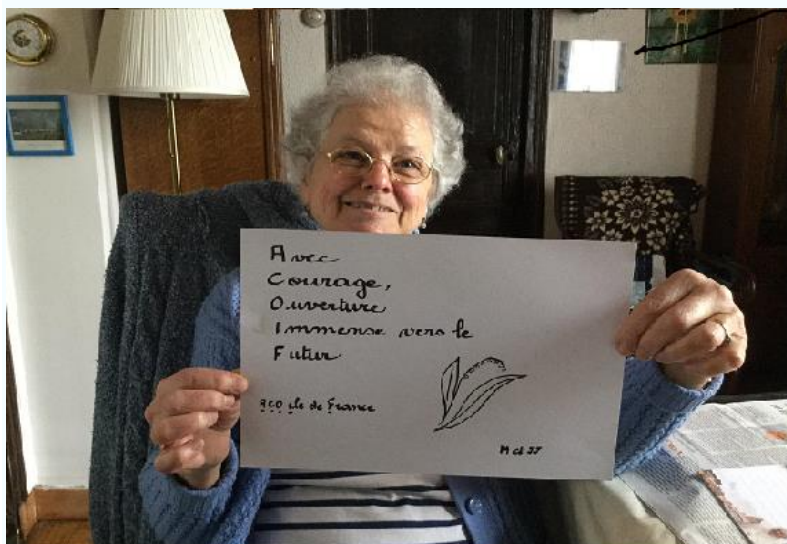 Avec
Courage,
Ouverture
Immense vers le
Futur
aco ile de France